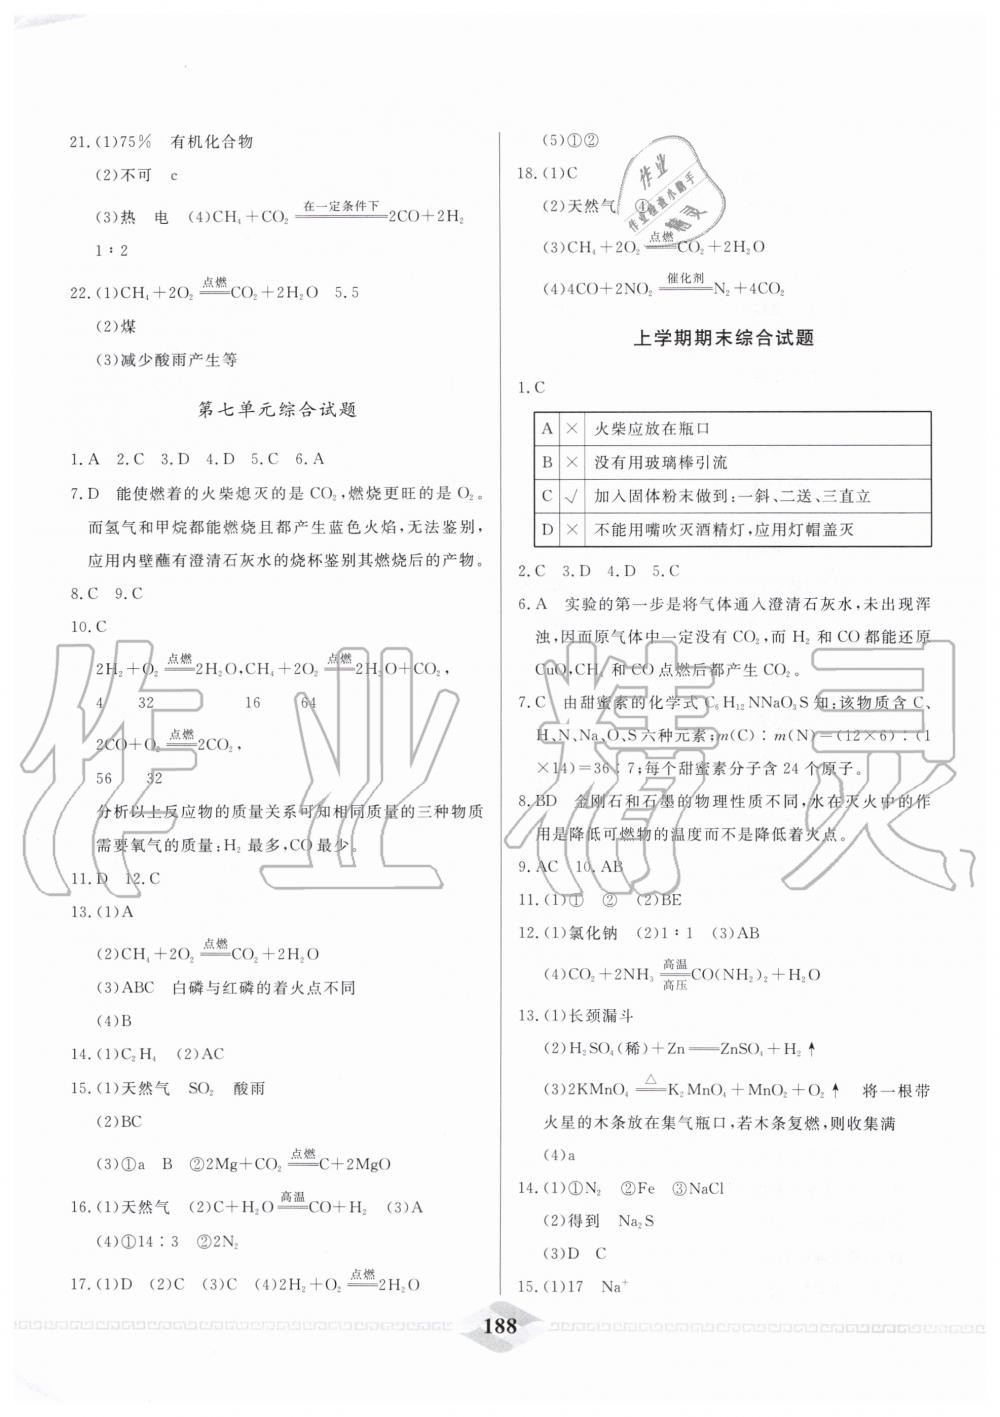 21.(1)75% 有机化合物
(2)不可 c
(3)热 电 (4)CH₄+CO₂ =在一定条件下= 2CO+2H₂
1∶2
22.(1)CH₄+2O₂ =点燃= CO₂+2H₂O 5.5
(2)煤
(3)减少酸雨产生等
第七单元综合试题
1.A 2.C 3.D 4.D 5.C 6.A
7.D 能使燃着的火柴熄灭的是 CO₂,燃烧更旺的是 O₂。
而氢气和甲烷都能燃烧且都产生蓝色火焰,无法鉴别,
应用内壁蘸有澄清石灰水的烧杯鉴别其燃烧后的产物。
8.C 9.C
10.C
2H₂+O₂ =点燃= 2H₂O,CH₄+2O₂ =点燃= 2H₂O+CO₂,
4 32 16 64
2CO+O₂ =点燃= 2CO₂,
56 32
分析以上反应物的质量关系可知相同质量的三种物质
需要氧气的质量:H₂ 最多,CO最少。
11.D 12.C
13.(1)A
(2)CH₄+2O₂ =点燃= CO₂+2H₂O
(3)ABC 白磷与红磷的着火点不同
(4)B
14.(1)C₂H₄ (2)AC
15.(1)天然气 SO₂ 酸雨
(2)BC
(3)①a B ②2Mg+CO₂ =点燃= C+2MgO
16.(1)天然气 (2)C+H₂O =高温= CO+H₂ (3)A
(4)①14∶3 ②2N₂
17.(1)D (2)C (3)C (4)2H₂+O₂ =点燃= 2H₂O
(5)①②
18.(1)C
(2)天然气 ④
(3)CH₄+2O₂ =点燃= CO₂+2H₂O
(4)4CO+2NO₂ =催化剂= N₂+4CO₂
上学期期末综合试题
1.C
A × 火柴应放在瓶口
B × 没有用玻璃棒引流
C √ 加入固体粉末做到:一斜、二送、三直立
D × 不能用嘴吹灭酒精灯,应用灯帽盖灭
2.C 3.D 4.D 5.C
6.A 实验的第一步是将气体通入澄清石灰水,未出现浑
浊,因而原气体中一定没有 CO₂,而 H₂ 和 CO 都能还原
CuO,CH₄ 和 CO 点燃后都产生 CO₂。
7.C 由甜蜜素的化学式 C₆H₁₂NNaO₃S 知:该物质含 C、
H、N、Na、O、S六种元素;m(C)∶m(N)=(12×6)∶(1
×14)=36∶7;每个甜蜜素分子含 24 个原子。
8.BD 金刚石和石墨的物理性质不同,水在灭火中的作
用是降低可燃物的温度而不是降低着火点。
9.AC 10.AB
11.(1)① ② (2)BE
12.(1)氯化钠 (2)1∶1 (3)AB
(4)CO₂+2NH₃ =高温 高压= CO(NH₂)₂+H₂O
13.(1)长颈漏斗
(2)H₂SO₄(稀)+Zn══ZnSO₄+H₂↑
(3)2KMnO₄ =△= K₂MnO₄+MnO₂+O₂↑ 将一根带
火星的木条放在集气瓶口,若木条复燃,则收集满
(4)a
14.(1)①N₂ ②Fe ③NaCl
(2)得到 Na₂S
(3)D C
15.(1)17 Na⁺
188
作业精灵
作业
作业检查小助手
精灵